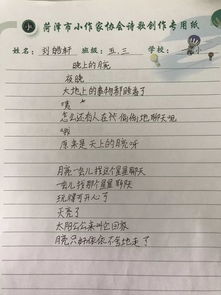 菏泽市小作家协会诗歌创作专用纸
姓名: 刘皓轩 班级: 五.三 学校:
晚上的月亮
夜晚
大地上的事物都睡着了
咦
怎么还有人在偷偷地聊天呢
哦
原来是天上的月亮呀
月亮一会儿找这个星星聊天
一会儿找那个星星聊天
玩得可开心了
天亮了
太阳公公来叫它回家
月亮只好依依不舍地走了